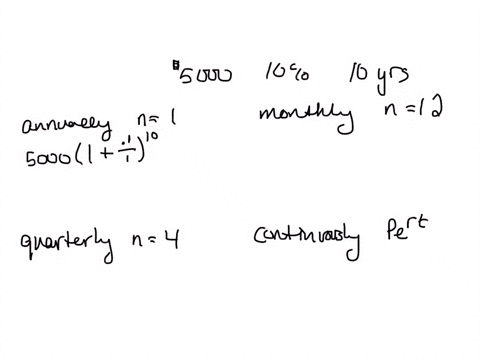 $5000 10% 10 yrs
annually n=1
5000(1+.1/1)^10
monthly n=12
quarterly n=4
continuously Pe^rt